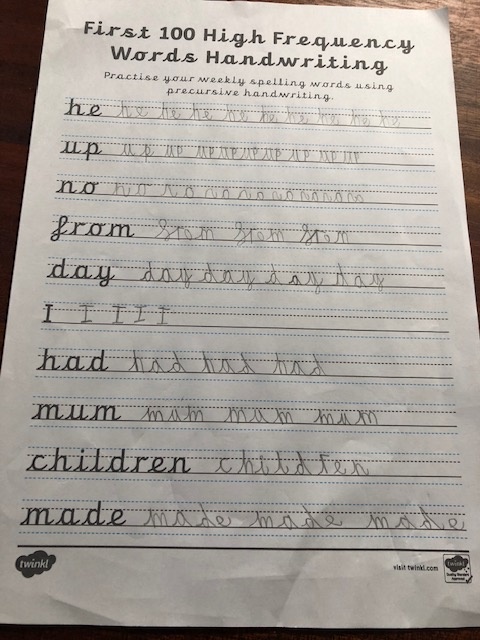 First 100 High Frequency
Words Handwriting
Practise your weekly spelling words using
precursive handwriting.
he he he he he he he he he he
up up up up up up up up up up
no no no no no no no no no
from from from from
day day day day day
I I I I I
had had had had
mum mum mum mum
children children
made made made made
twinkl visit twinkl.com